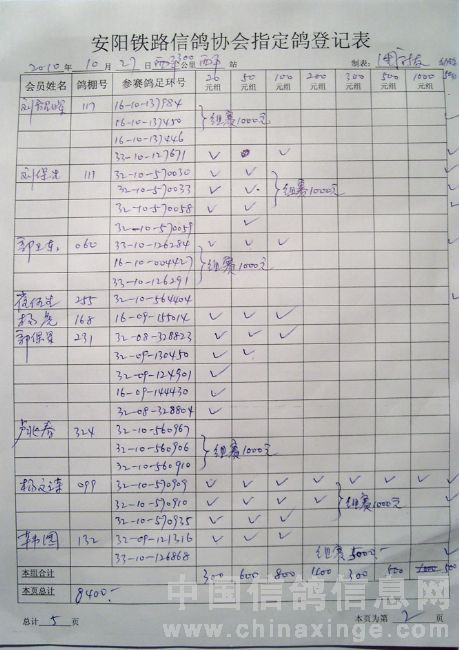 安阳铁路信鸽协会指定鸽登记表
2010 年 10 月 27 日 300 公里 站 制表:
会员姓名 鸽棚号 参赛鸽足环号 20元组 50元组 100元组 200元组 300元组 500元组 1000元组
117 16-10-137984
16-10-137450 组赛1000元
16-10-137446
33-10-127671 ✓ ✓
刘保 111 32-10-570030 ✓ ✓
32-10-570033 ✓ ✓ 组赛1000元
32-10-570058 ✓ ✓
32-10-570059 ✓
060 33-10-126284 ✓ ✓ ✓
16-10-004427 组赛1000元
33-10-126291
255 32-10-564404 ✓
杨虎 168 16-09-155014 ✓ ✓ ✓
郭保 231 32-08-328823 ✓ ✓ ✓
32-09-130450 ✓ ✓
32-09-124901 ✓
16-09-144430 ✓
32-08-328804 ✓
324 32-10-560967
32-10-560906 组赛1000元
32-10-560910
杨文 099 32-10-570909 ✓ ✓ ✓ ✓ ✓ ✓ ✓
32-10-570910 ✓ ✓ ✓ ✓ 组赛1000元
32-10-570935 ✓ ✓ ✓
韩国 132 32-09-121316 ✓ ✓ ✓
33-10-126868 组赛5000元
本组合计 300 600 800 1400 300 500 500
本页总计 8400.-
总计 5 页 本页为第 2 页
中国信鸽信息网
www.chinaxinge.com